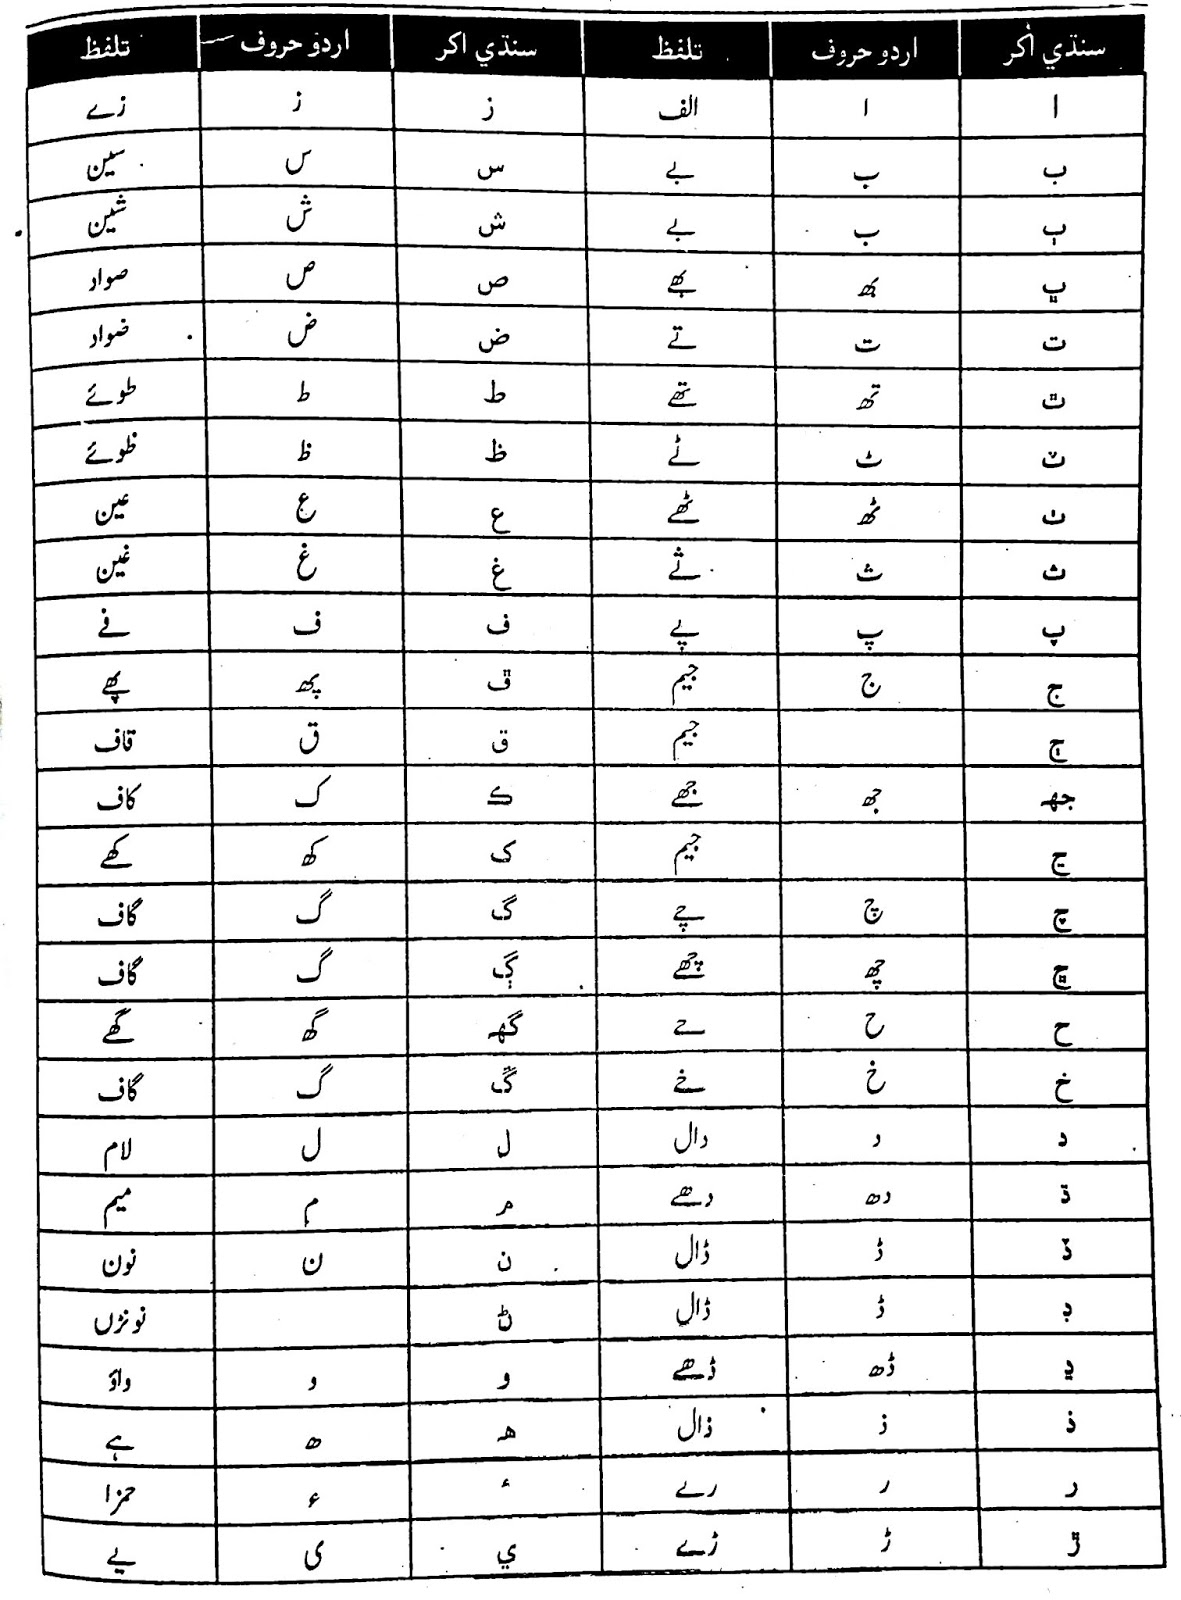 سنڌي اکر اردو حروف تلفظ سنڌي اکر اردو حروف تلفظ
ا ا الف ز ز زے
ب ب بے س س سین
ٻ ب بے ش ش شین
ڀ بھ بھے ص ص صواد
ت ت تے ض ض ضواد
ٿ تھ تھے ط ط طوئے
ٽ ٹ ٹے ظ ظ ظوئے
ٺ ٹھ ٹھے ع ع عین
ث ث ثے غ غ غین
پ پ پے ف ف فے
ج ج جیم ڦ پھ پھے
ڄ جیم ق ق قاف
جھ جھ جھے ڪ ک کاف
ڃ جیم ک کھ کھے
چ چ چے گ گ گاف
ڇ چھ چھے ڳ گ گاف
ح ح حے گھ گھ گھے
خ خ خے ڱ گ گاف
د د دال ل ل لام
ڌ دھ دھے م م میم
ڏ ڈ ڈال ن ن نون
ڊ ڈ ڈال ڻ نونڑں
ڍ ڈھ ڈھے و و واؤ
ذ ذ ذال ھ ھ ہے
ر ر رے ء ء حمزا
ڙ ڑ ڑے ي ی یے